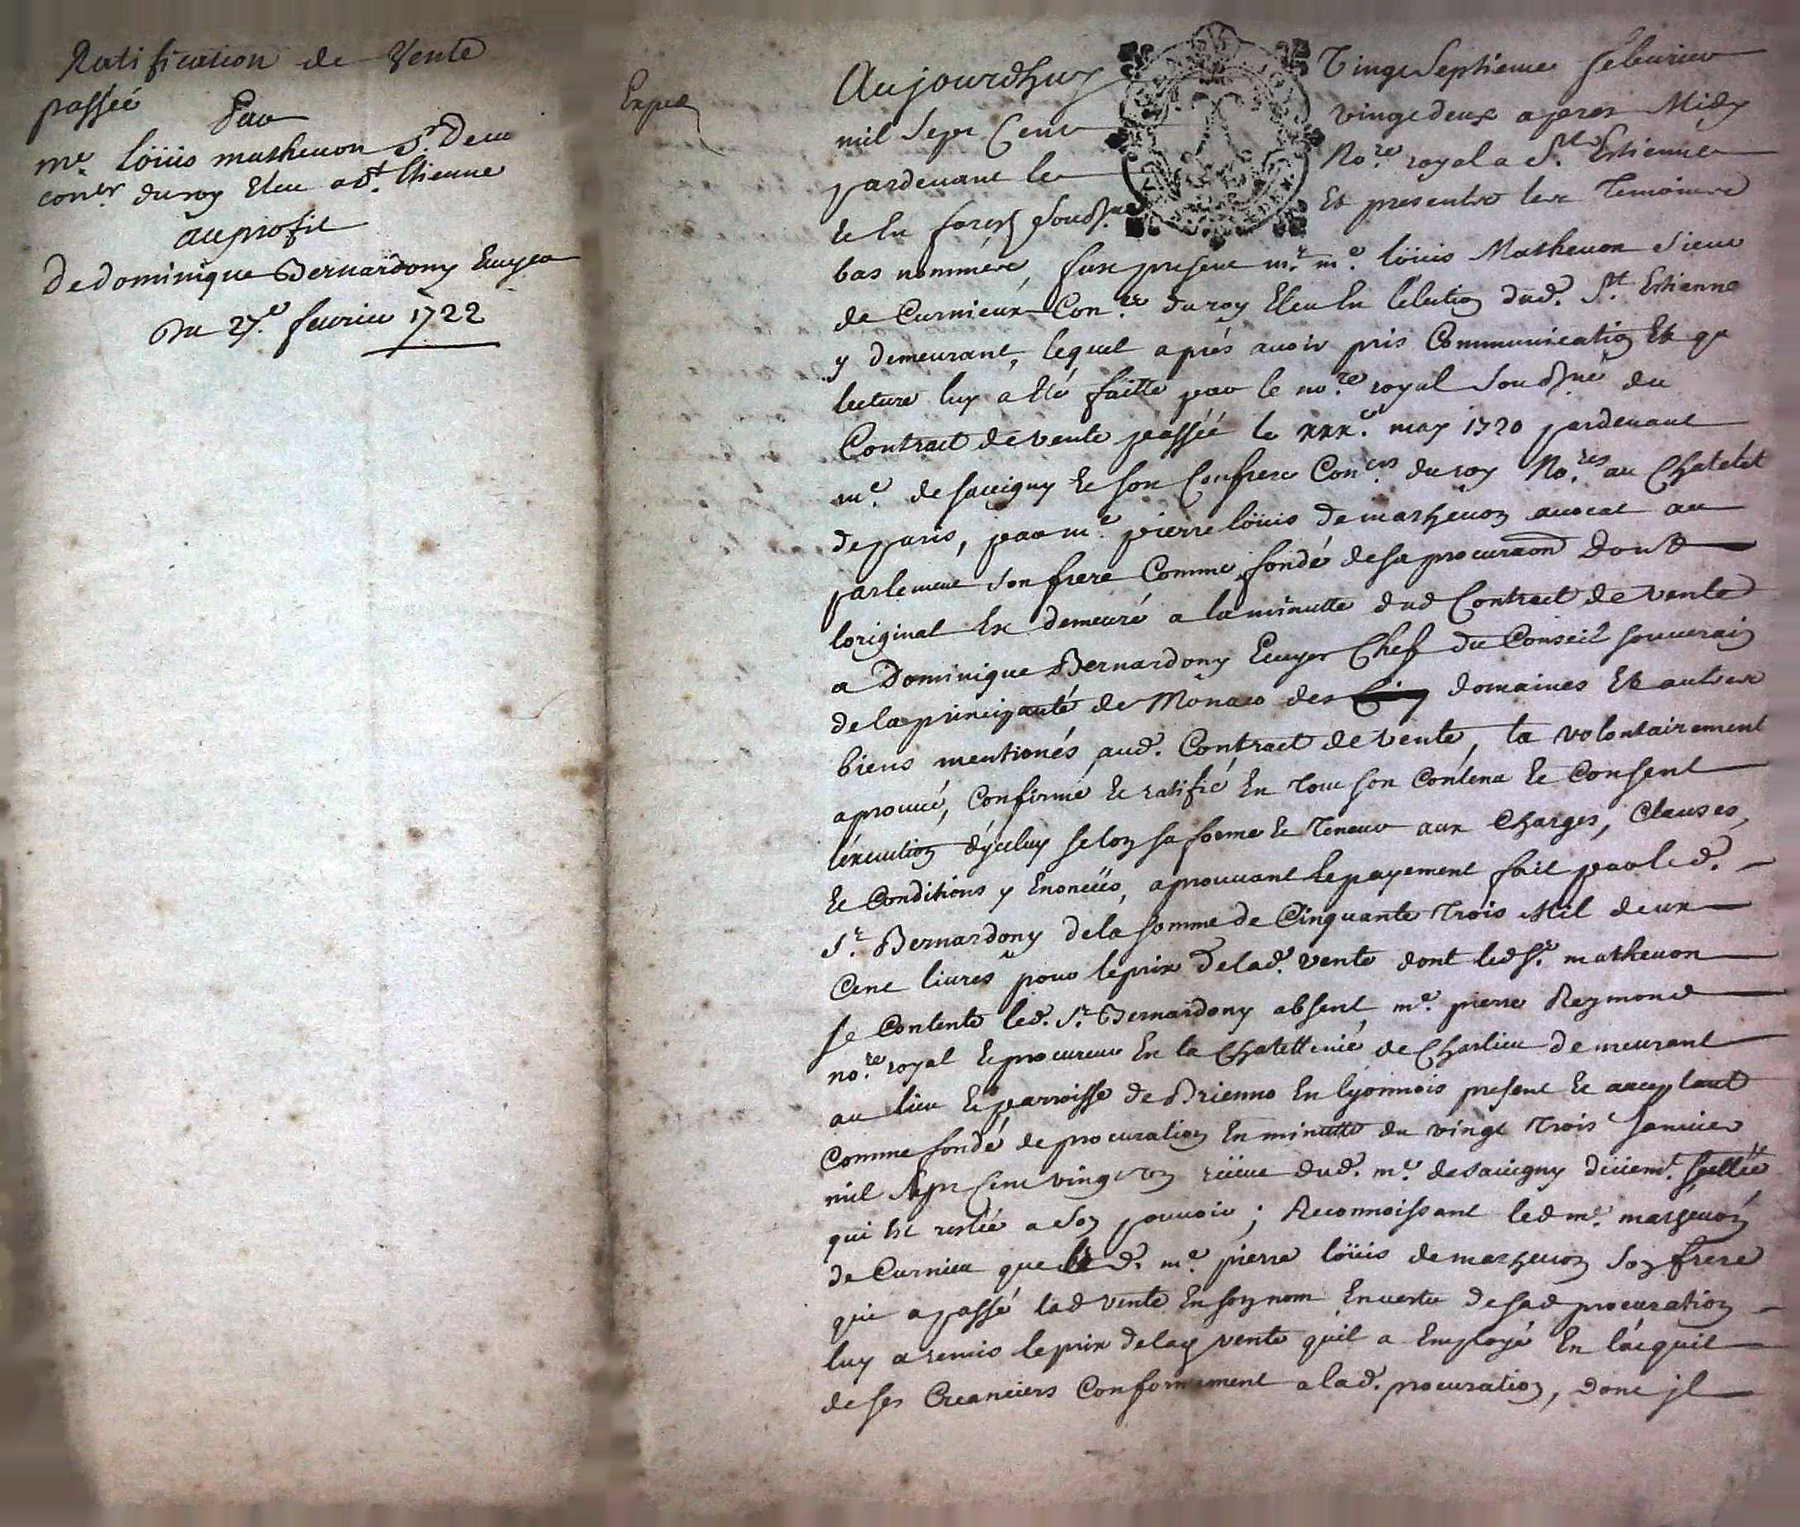 Ratification de Vente
passée
Par
me. löüis matheuon Sr. de cu
coner. du roy Eleu a St. Etienne
au profit
De dominique Bernardony Ecuyer
Du 27e. feurier 1722
Exped
Aujourdhuy Vingt Septieme feburier
mil Sept Cent vingt deux apres Midy
pardeuant le No.re royal a St. Estienne
de la forest sousne. Et presents les Temoins
bas nommés, fust present mr. me. löüis Matheuon sieur
de Curnieux Con.er du roy Eleu En lelection dud. St. Estienne
y demeurant, lequel aprés auoir pris Communication Et que
lecture luy a Eté faitte par le no.re royal Sousné du
Contract de vente passée le xxxe. may 1720 pardeuant
me. de sauigny Et son Confrere Con.ers du roy No.res au Chatelet
de paris, par me. pierre löüis de matheuon auocat au
parlement son frere Comme fondé de sa procuraon Dont
loriginal Est demeuré a la minutte dud Contract de vente
a Dominique Bernardony Ecuyer Chef du Conseil souuerain
de la principauté de Monaco des domaines Et autres
biens mentionés aud. Contract de vente, la volontairement
aprouué, Confirmé Et ratifié En Tout son Conténu Et Consent
léxecution d'yceluy selon sa forme Et Teneur aux Charges, Clauses,
Et Conditions y Enoncées, aprouuant Le payement fait par led.
Sr. Bernardony de la somme de Cinquante Trois Mil deux
Cent liures pour le prix de lad. vente dont led Sr. matheuon
se Contente led. Sr. Bernardony absent, me. pierre Reymond
no.re royal Et procureur En la Chatellenie de Charlieu demeurant
au lieu Et parroisse de Brienno En lyonnois present Et acceptant
Comme fondé de procuration En minutte du vingt Trois Januier
mil Sept Cent vingt un receue dud. me. de sauigny
qui Est restée a son pouuoir ; Reconnoissant led me. matheuon
de Curnieu que led. me. pierre löüis de matheuon son frere
qui a passé lad vente En son nom En vertu de sad procuration
luy a remis le prix de lad vente qu'il a Employé En lácquit
de ses Creanciers Conformement a lad. procuration, donc jl